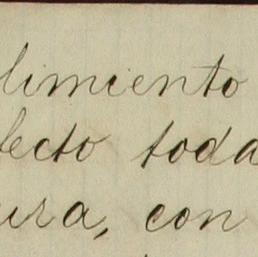 limiento
fecto toda
ura, con